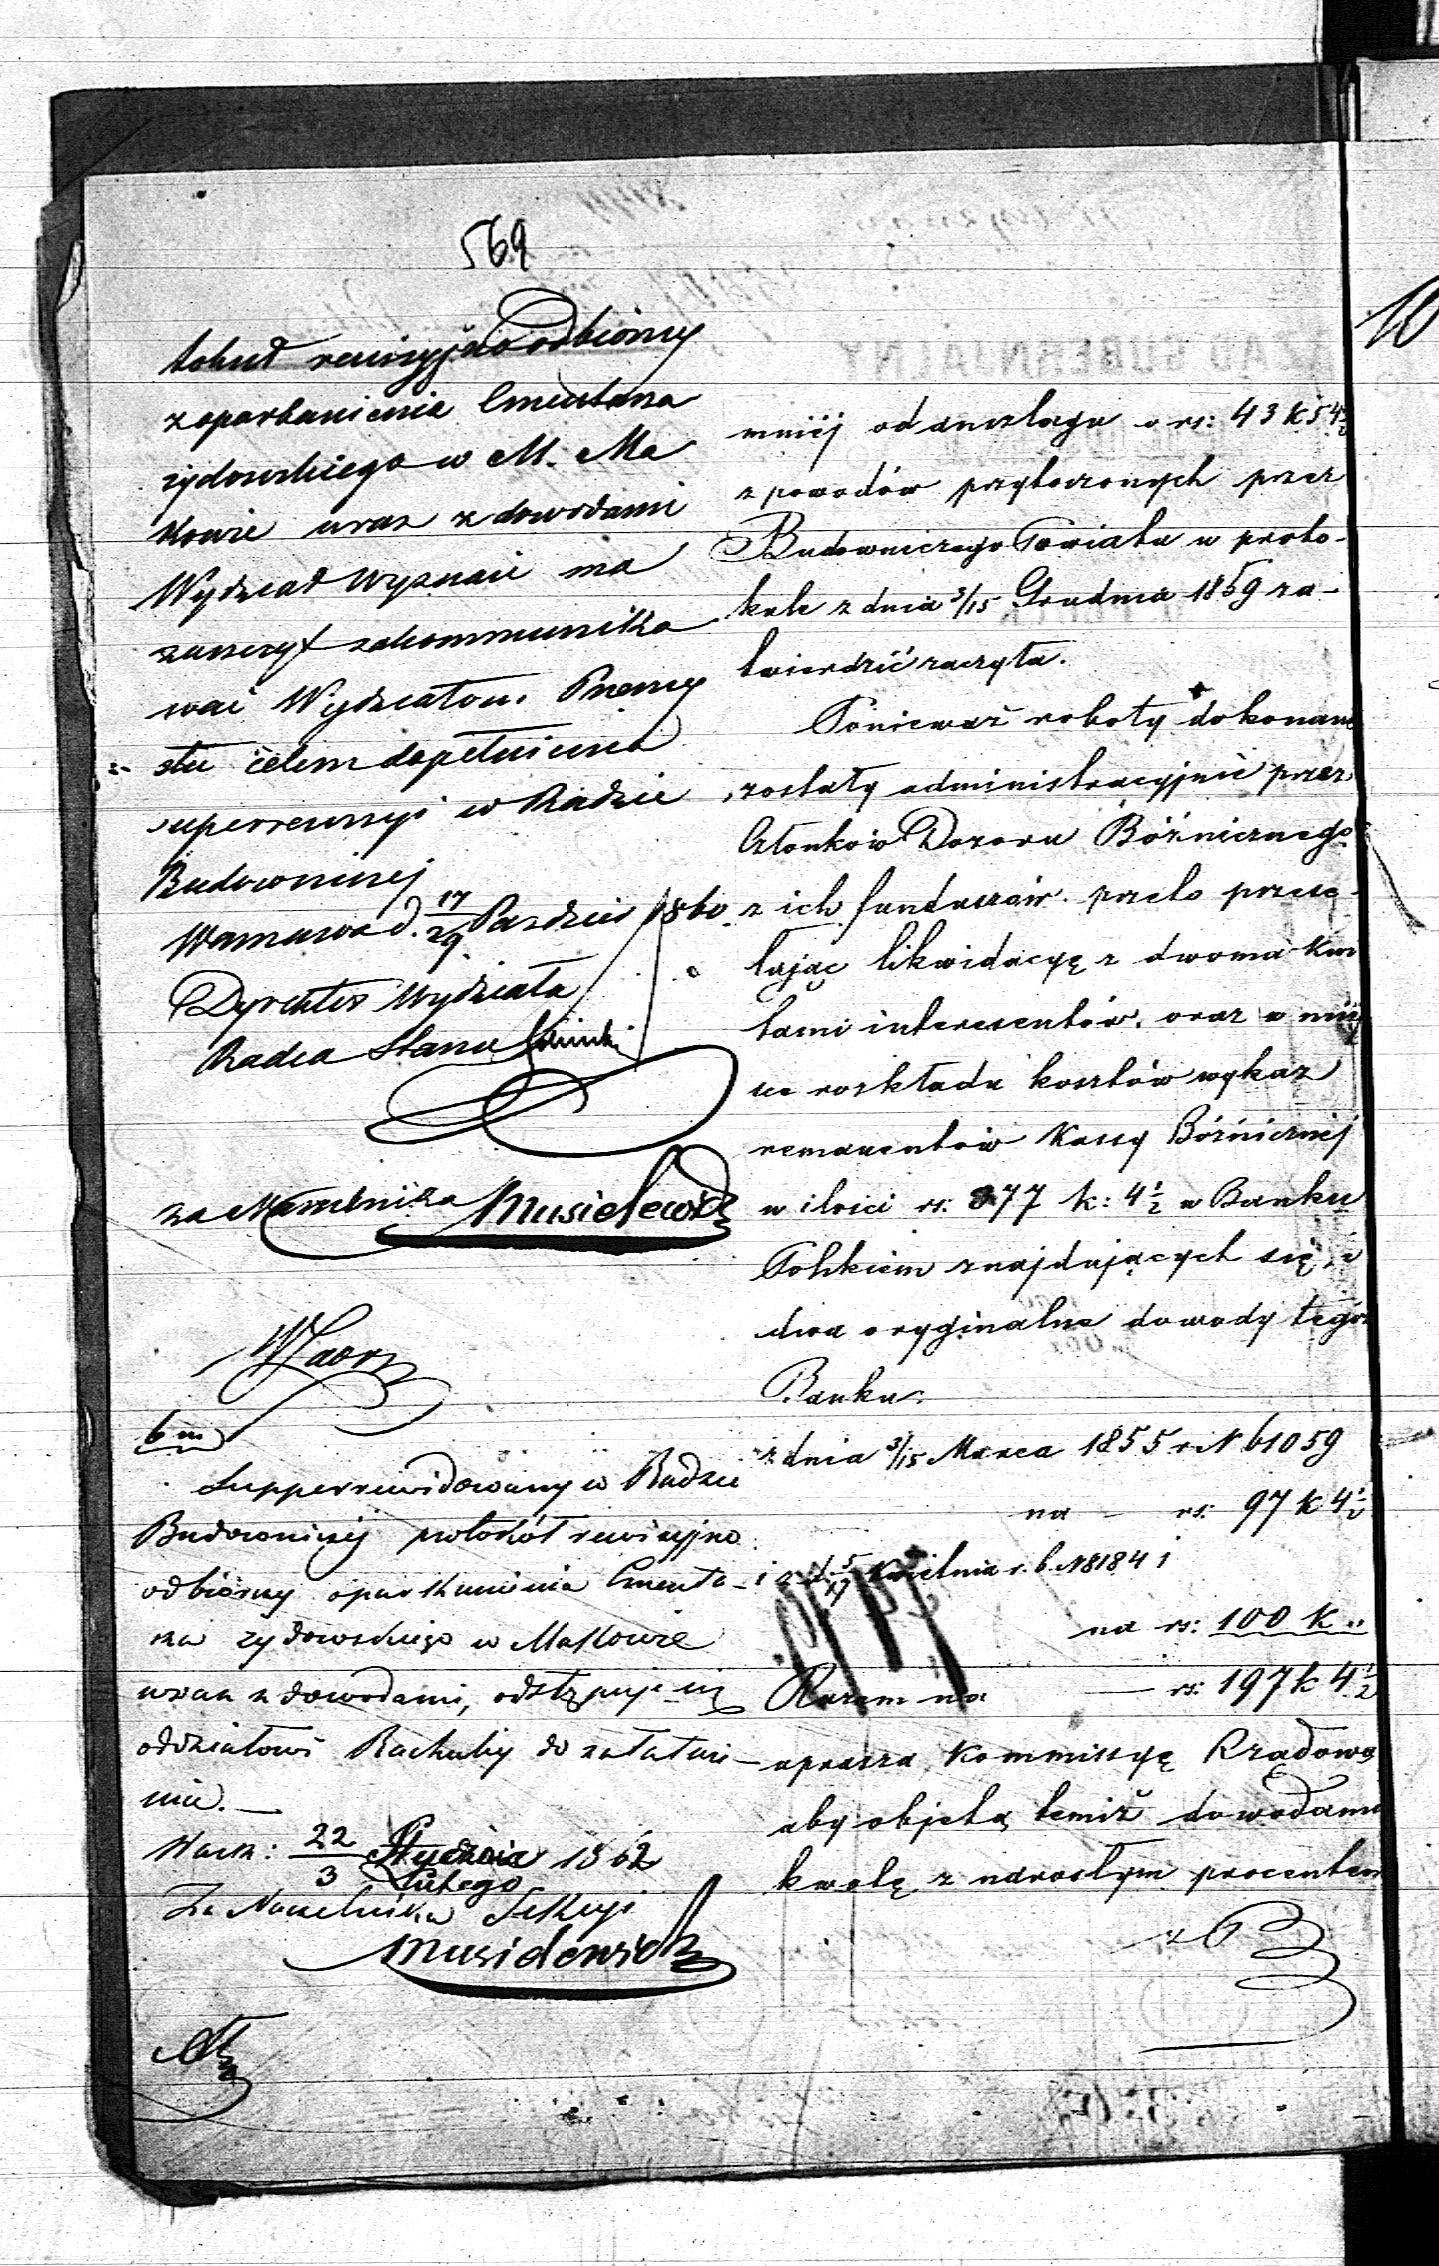 569
tokuł rewizyjno odbiorczy
zaparkanienia Cmentarza
żydowskiego w M. Ma
kowie wraz z dowodami
Wydział Wyznań ma
zaszczyt zakommuniko
wać Wydziałowi Przemy
słu celem dopełnienia
superrewizyi w Radzie
Budowniczej
Warszawa d. 17/29 Paździer 1860
Dyrektor Wydziału
Radca Stanu
za Naczelnika Musielewicz
6 m
Supperrewidowany w Radzie
Budowniczej protokół rewizyjno
odbiorczy oparkanienia Cmenta-
rza żydowskiego w Makowie
wraz z dowodami, odstępuje się
oddziałowi Rachuby do załatwie-
nia.
Warsz: 22/3 Stycznia/Lutego 1862
Za Naczelnika Sekcyi
Musielewicz
mniej od anszlagu o rs: 43 k 54½
z powodów przytoczonych przez
Budowniczego Powiatu w proto-
kule z dnia 3/15 Grudnia 1859 za-
twierdzić raczyła.
Poniewarz roboty dokonane
zostały administracyjnie przez
Członków Dozoru Bóźniczego
z ich funduszów. przeto przesy-
łając likwidacyę z dwoma kwi
tami interesentów, oraz w miej
sce rozkładu kosztów wykaz
remanentów Kassy Bóźniczej
w ilości rs. 377 k: 4½ w Banku
Polskiem znajdujących się, i
dwa oryginalne dowody tegoż
Banku.
z dnia 3/15 Marca 1855 r. N 61059
na — rs. 97 k 4½
i z d. 5/17 Kwietnia r. b. N 8184 i
na rs: 100 k "
Razem na — rs: 197 k 4½
uprasza Kommissyę Rządową
aby objętą temiż dowodami
kwotę z narosłym procentem